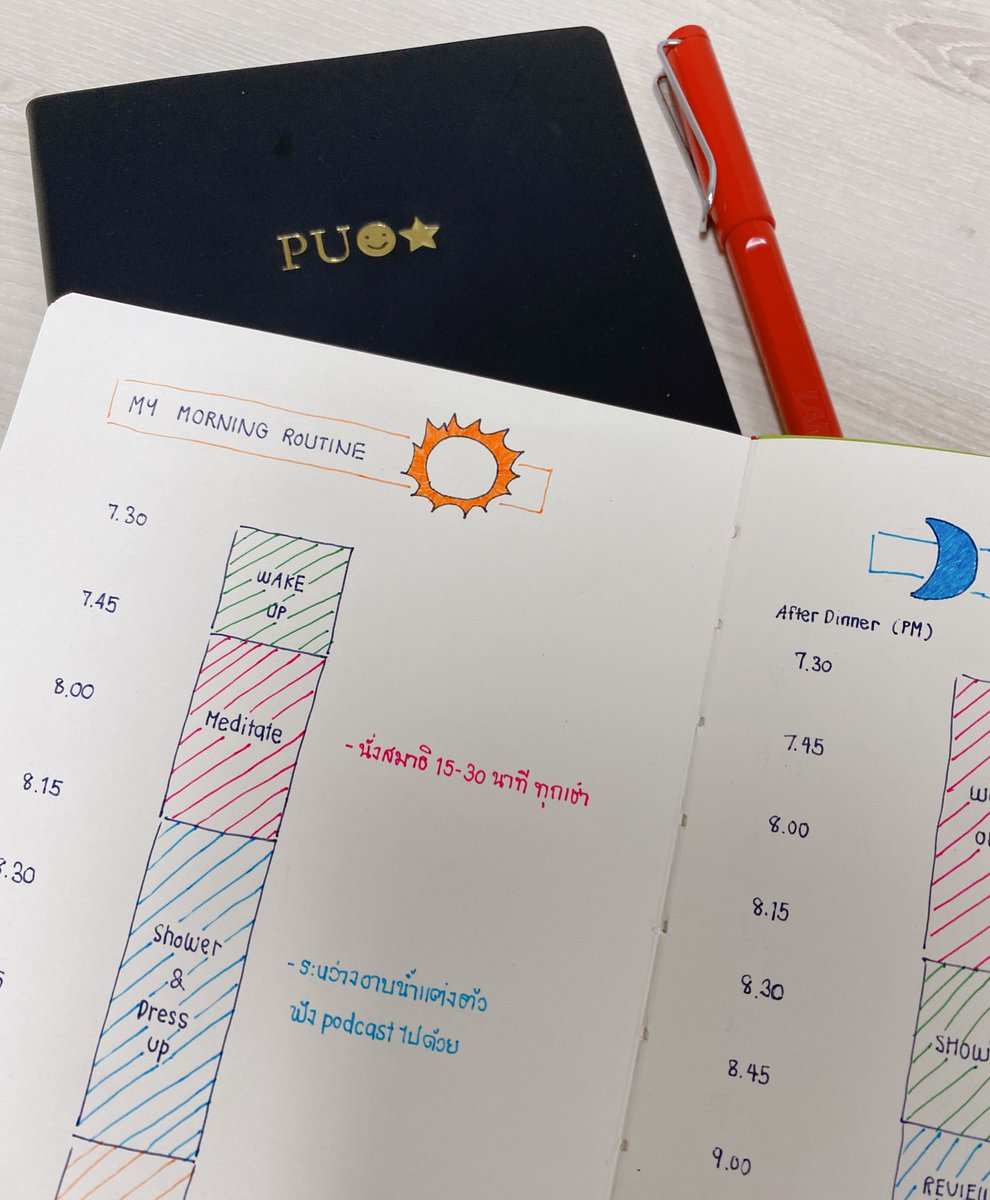 PU
MY MORNING ROUTINE
7.30
7.45
8.00
8.15
8.30
WAKE
UP
Meditate
- นั่งสมาธิ 15-30 นาที ทุกเช้า
Shower
&
Dress
up
- ระหว่างอาบน้ำแต่งตัว
ฟัง podcast ไปด้วย
After Dinner (PM)
7.30
7.45
8.00
8.15
8.30
8.45
9.00